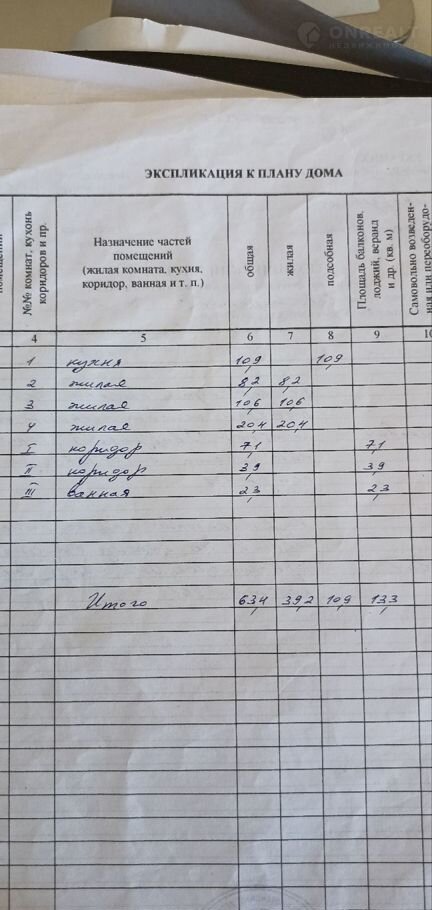 ONREALT
НЕДВИЖИМОСТЬ
ЭКСПЛИКАЦИЯ К ПЛАНУ ДОМА
помещений
№№ комнат, кухонь
коридоров и пр.
Назначение частей
помещений
(жилая комната, кухня,
коридор, ванная и т. п.)
общая
жилая
подсобная
Площадь балконов,
лоджий, веранд
и др. (кв. м)
Самовольно возведен-
ная или переоборудо-
4 5 6 7 8 9 10
1 кухня 10,9 10,9
2 жилая 8,2 8,2
3 жилая 10,6 10,6
4 жилая 20,4 20,4
I коридор 7,1 7,1
II коридор 3,9 3,9
III ванная 2,3 2,3
Итого 63,4 39,2 10,9 13,3